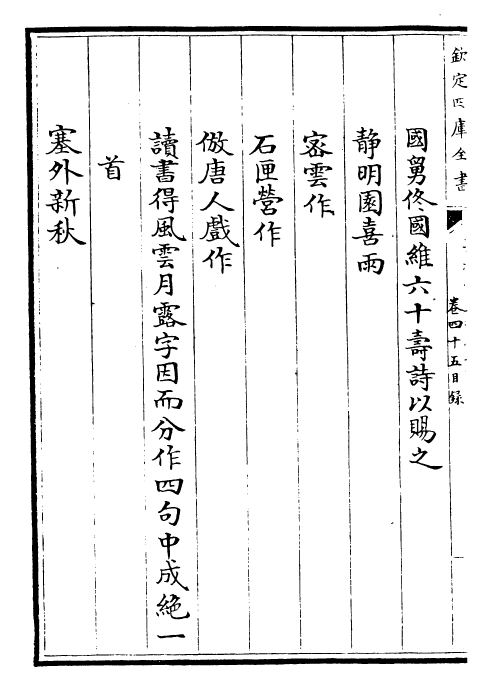 欽定四庫全書
卷四十五目録
國舅佟國維六十壽詩以賜之
静明園喜雨
密雲作
石匣營作
倣唐人戲作
讀書得風雲月露字因而分作四句中成絶一
首
塞外新秋